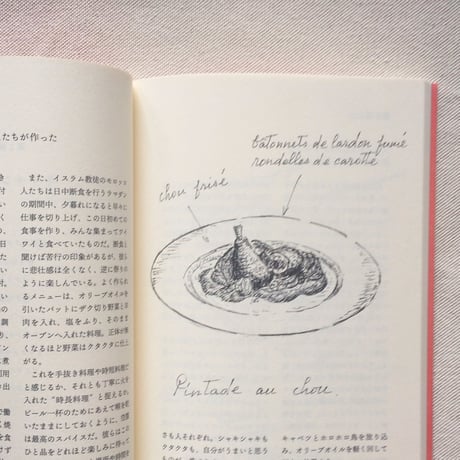 たちが作った
また、イスラム教徒のモロッコ
人たちは日中断食を行うラマダン
の期間中、夕暮れになると早々に
仕事を切り上げ、この日初めての
食事を作り、みんな集まってワイ
ワイと食べていたものだ。断食と
聞けば苦行の印象があるが、彼ら
に悲壮感は全くなく、逆に祭りの
ように楽しんでいる。よく作られ
るメニューは、オリーブオイルを
引いたバットにザク切り野菜と羊
肉を入れ、塩をふり、そのまま
オーブンへ入れた料理。正体が無
くなるほど野菜はクタクタに仕上
がる。
これを手抜き料理や時短料理だ
と感じるか、それとも丁寧に火を
入れた“時長料理”と捉えるか。
ビール一杯のためにあえて喉を
ように、空腹
は最高のスパイスだ。彼らはこの
ひと品をどれほど楽しみに待って
bâtonnets de lardon fumé
rondelles de carotte
chou frisé
Pintade au chou.
さも人それぞれ。シャキシャキも
クタクタも、自分がうまいと思う
キャベツとホロホロ鳥を放り込
み、オリーブオイルを軽く回しか